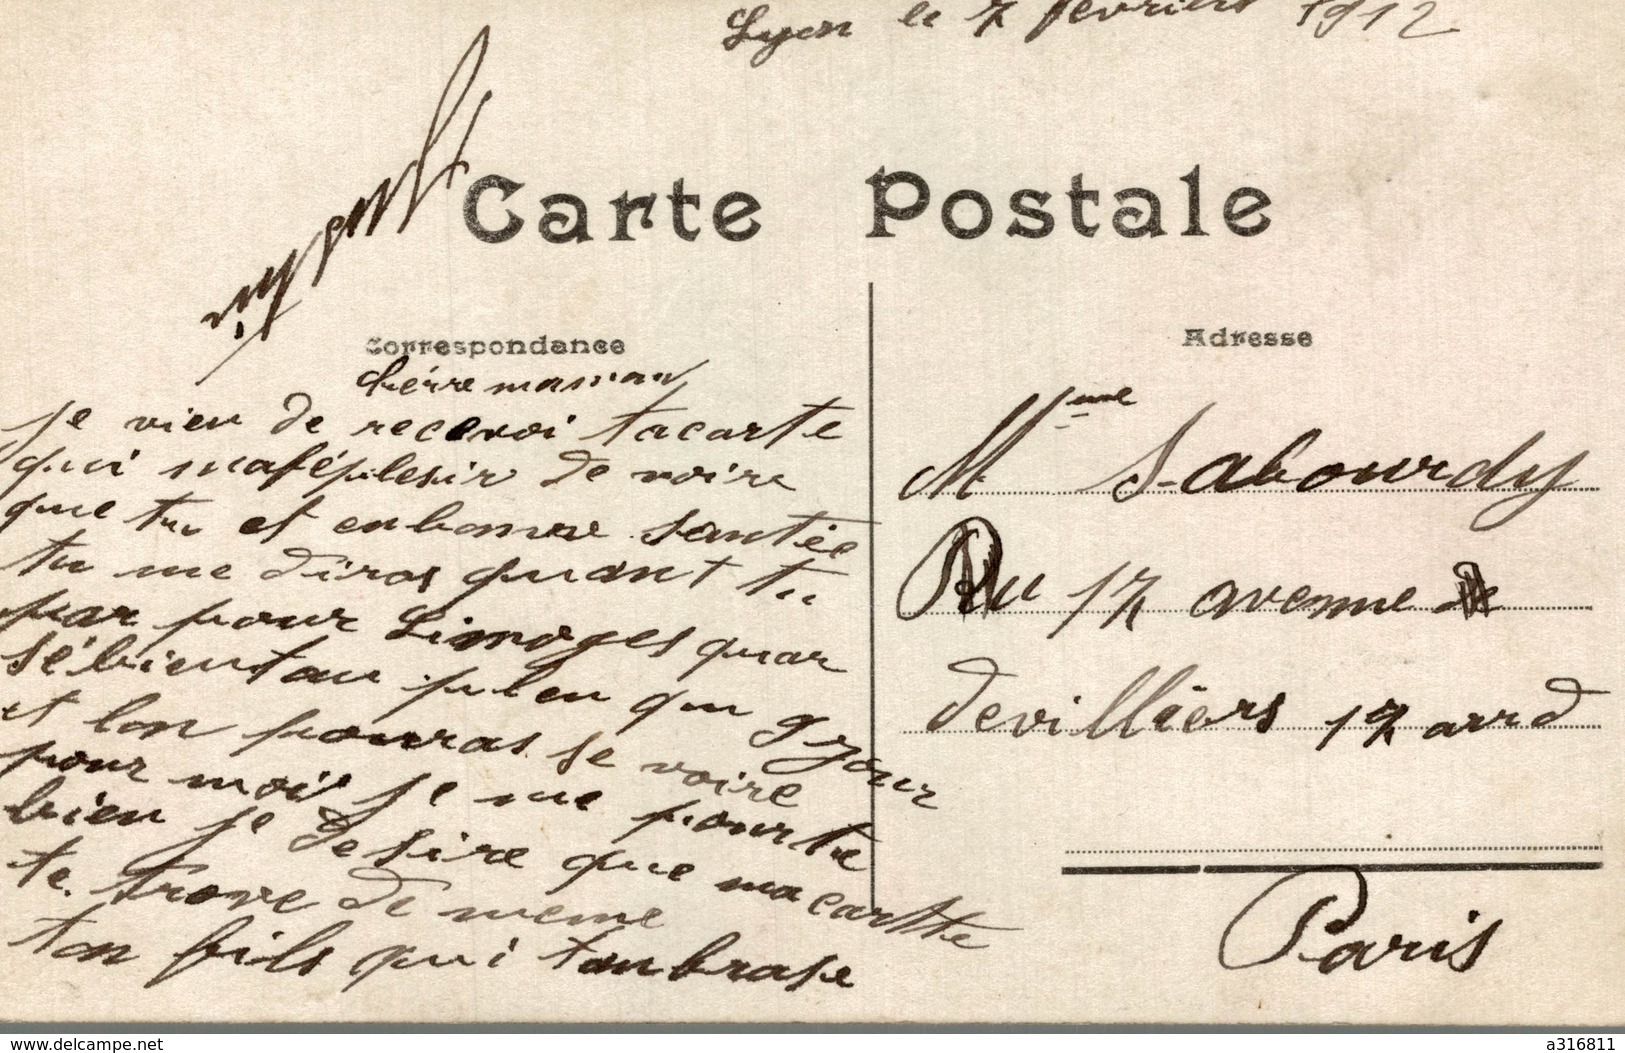 Lyon le 7 fevriers 1912
Carte Postale
Correspondance
Adresse
chérre maman
Je vien de recevoi tacarte
qui mafé plesir de voire
que tu et enbonne santée
tu me diras quant tu
par pour Limoges quar
sé bientau plen qu
9 Jour
et lon pouras se voire
pour moi je me pourte
bien je desire que ma cartte
te trove de meme
ton fils qui tanbrase
Mme Sabourdy
Ru 17 avenue de
devilliers 17 arrd
Paris
www.delcampe.net
a316811